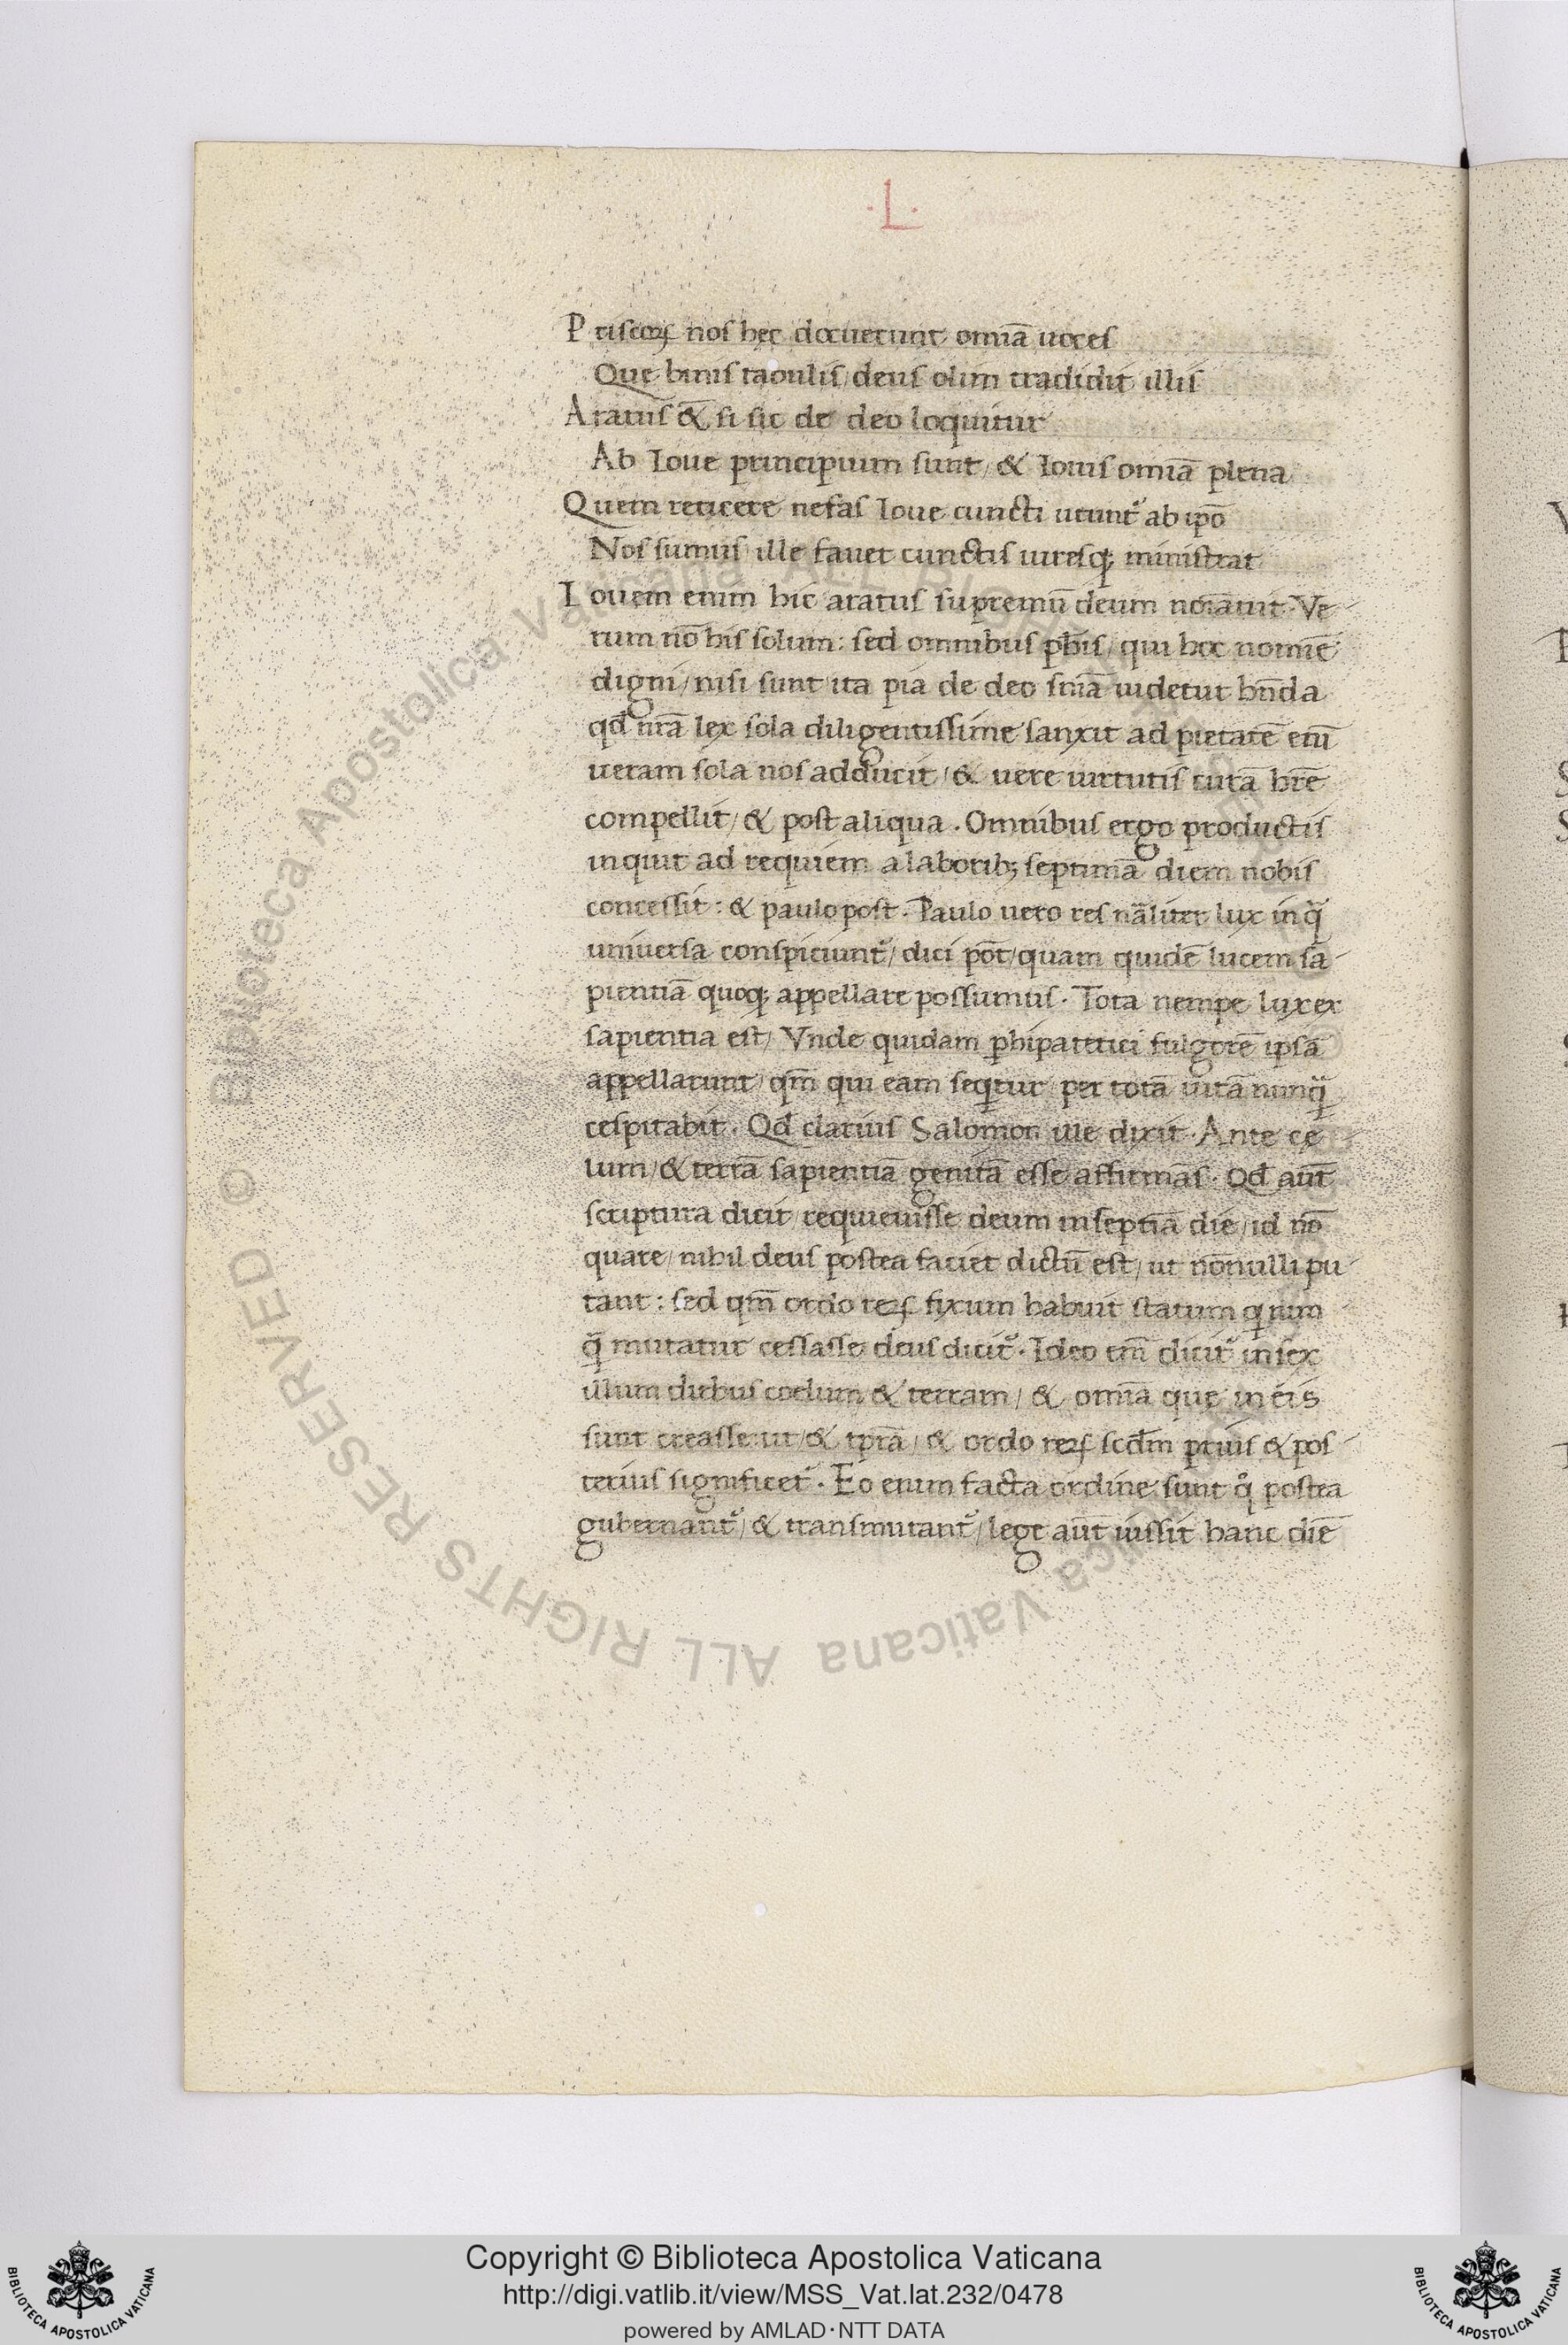 ·L·
Priscoꝝ nos hec docuerunt omīa uoces
Que binis tabulis deus olim tradidit illis
Aratus & si sic de deo loquitur
Ab Ioue principium sunt / & Iouis omīa plena
Quem reticere nefas Ioue cuncti utunt̄ ab ip̄o
Nos sumus ille fauet cunctis uiresqꝫ ministrat
Iouem enim hic aratus supremū deum noīauit. Ve
rum nō his solum: sed omnibus ph̄is / qui hoc nomīe
digni / nisi sunt ita pia de deo sn̄ia uidetur hn̄da
qd̄ nr̄a lex sola diligentissime sanxit ad pietatē eni᷃
ueram sola nos adducit / & uere uirtutis curā hr̄e
compellit / & post aliqua. Omnibus ergo productis
inquit ad requiem a laborib; septimā diem nobis
concessit: & paulo post. Paulo uero res nāliter lux in q̄
universa conspiciunt̄ / dici pōt / quam quidē lucem sa
pientiā quoqꝫ appellare possumus. Tota nempe lux ex
sapientia est / Vnde quidam phipatetici fulgorē ipsā
appellarunt qm̄ qui eam seqtur per totā uitā nunq̄
cespitabit. Qd̄ clarius Salomon ille dixit. Ante cę
lum / & terrā sapientiā genitā esse affirmās. Qd̄ aūt
scriptura dicit requieuisse deum in septīa die / id nō
quare / nihil deus postea faciet dictū est / ut nōnulli pu
tant: sed qm̄ ordo reꝝ fixum habuit statum qꝫ num
q̄ mutatur cessasse deus dicit̄. Ideo em̄ dicit̄ in sex
illum diebus coelum & terram / & omīa que in eis
sunt creasse: ut / & tp̄ra / & ordo reꝝ scdm̄ prius & pos
terius significet̄. Eo enim facta ordine sunt qͦ postea
gubernant̄ / & transmutant̄ / lege aūt iussit hanc diē
Copyright © Biblioteca Apostolica Vaticana
http://digi.vatlib.it/view/MSS_Vat.lat.232/0478
powered by AMLAD·NTT DATA
BIBLIOTECA APOSTOLICA VATICANA
BIBLIOTECA APOSTOLICA VATICANA
Biblioteca Apostolica Vaticana ALL RIGHTS RESERVED ©